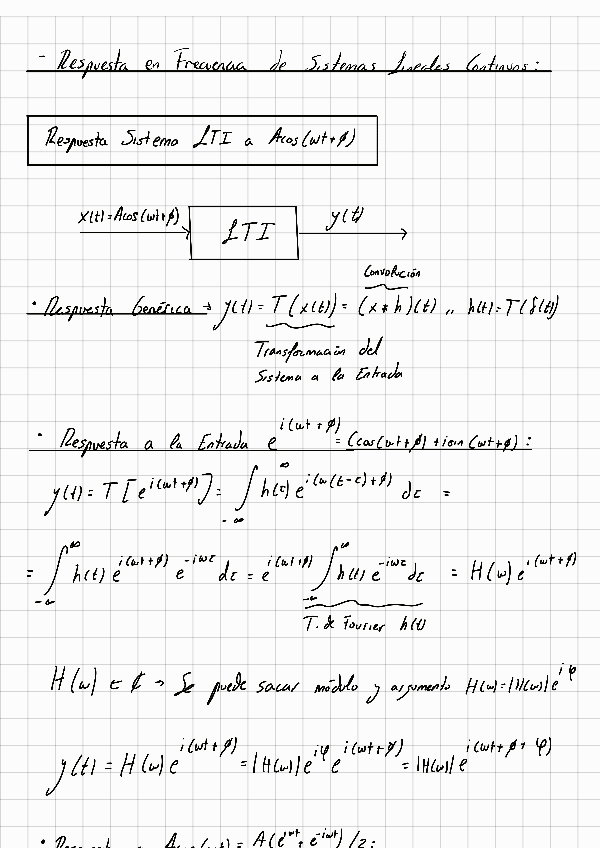 - Respuesta en Frecuencia de Sistemas Lineales Continuos:
Respuesta Sistema LTI a Acos(ωt+φ)
x(t)=Acos(ωt+φ) LTI y(t)
Convolución
· Respuesta Genérica → y(t) = T(x(t)) = (x*h)(t) ,, h(t)=T(δ(t))
Transformación del
Sistema a la Entrada
· Respuesta a la Entrada e^{i(ωt+φ)} = (cos(ωt+φ)+isin(ωt+φ):
y(t) = T[e^{i(ωt+φ)}] = ∫_{-∞}^{∞} h(τ) e^{i(ω(t-τ)+φ)} dτ =
= ∫_{-∞}^{∞} h(t) e^{i(ωt+φ)} e^{-iωτ} dτ = e^{i(ωt+φ)} ∫_{-∞}^{∞} h(t) e^{-iωτ} dτ = H(ω) e^{i(ωt+φ)}
T. de Fourier h(t)
H(ω) ∈ ℂ → Se puede sacar módulo y argumento H(ω)=|H(ω)|e^{iφ}
y(t) = H(ω) e^{i(ωt+φ)} = |H(ω)| e^{iφ} e^{i(ωt+φ)} = |H(ω)| e^{i(ωt+φ+φ)}
A(e^{iωt}+e^{-iωt})/2: